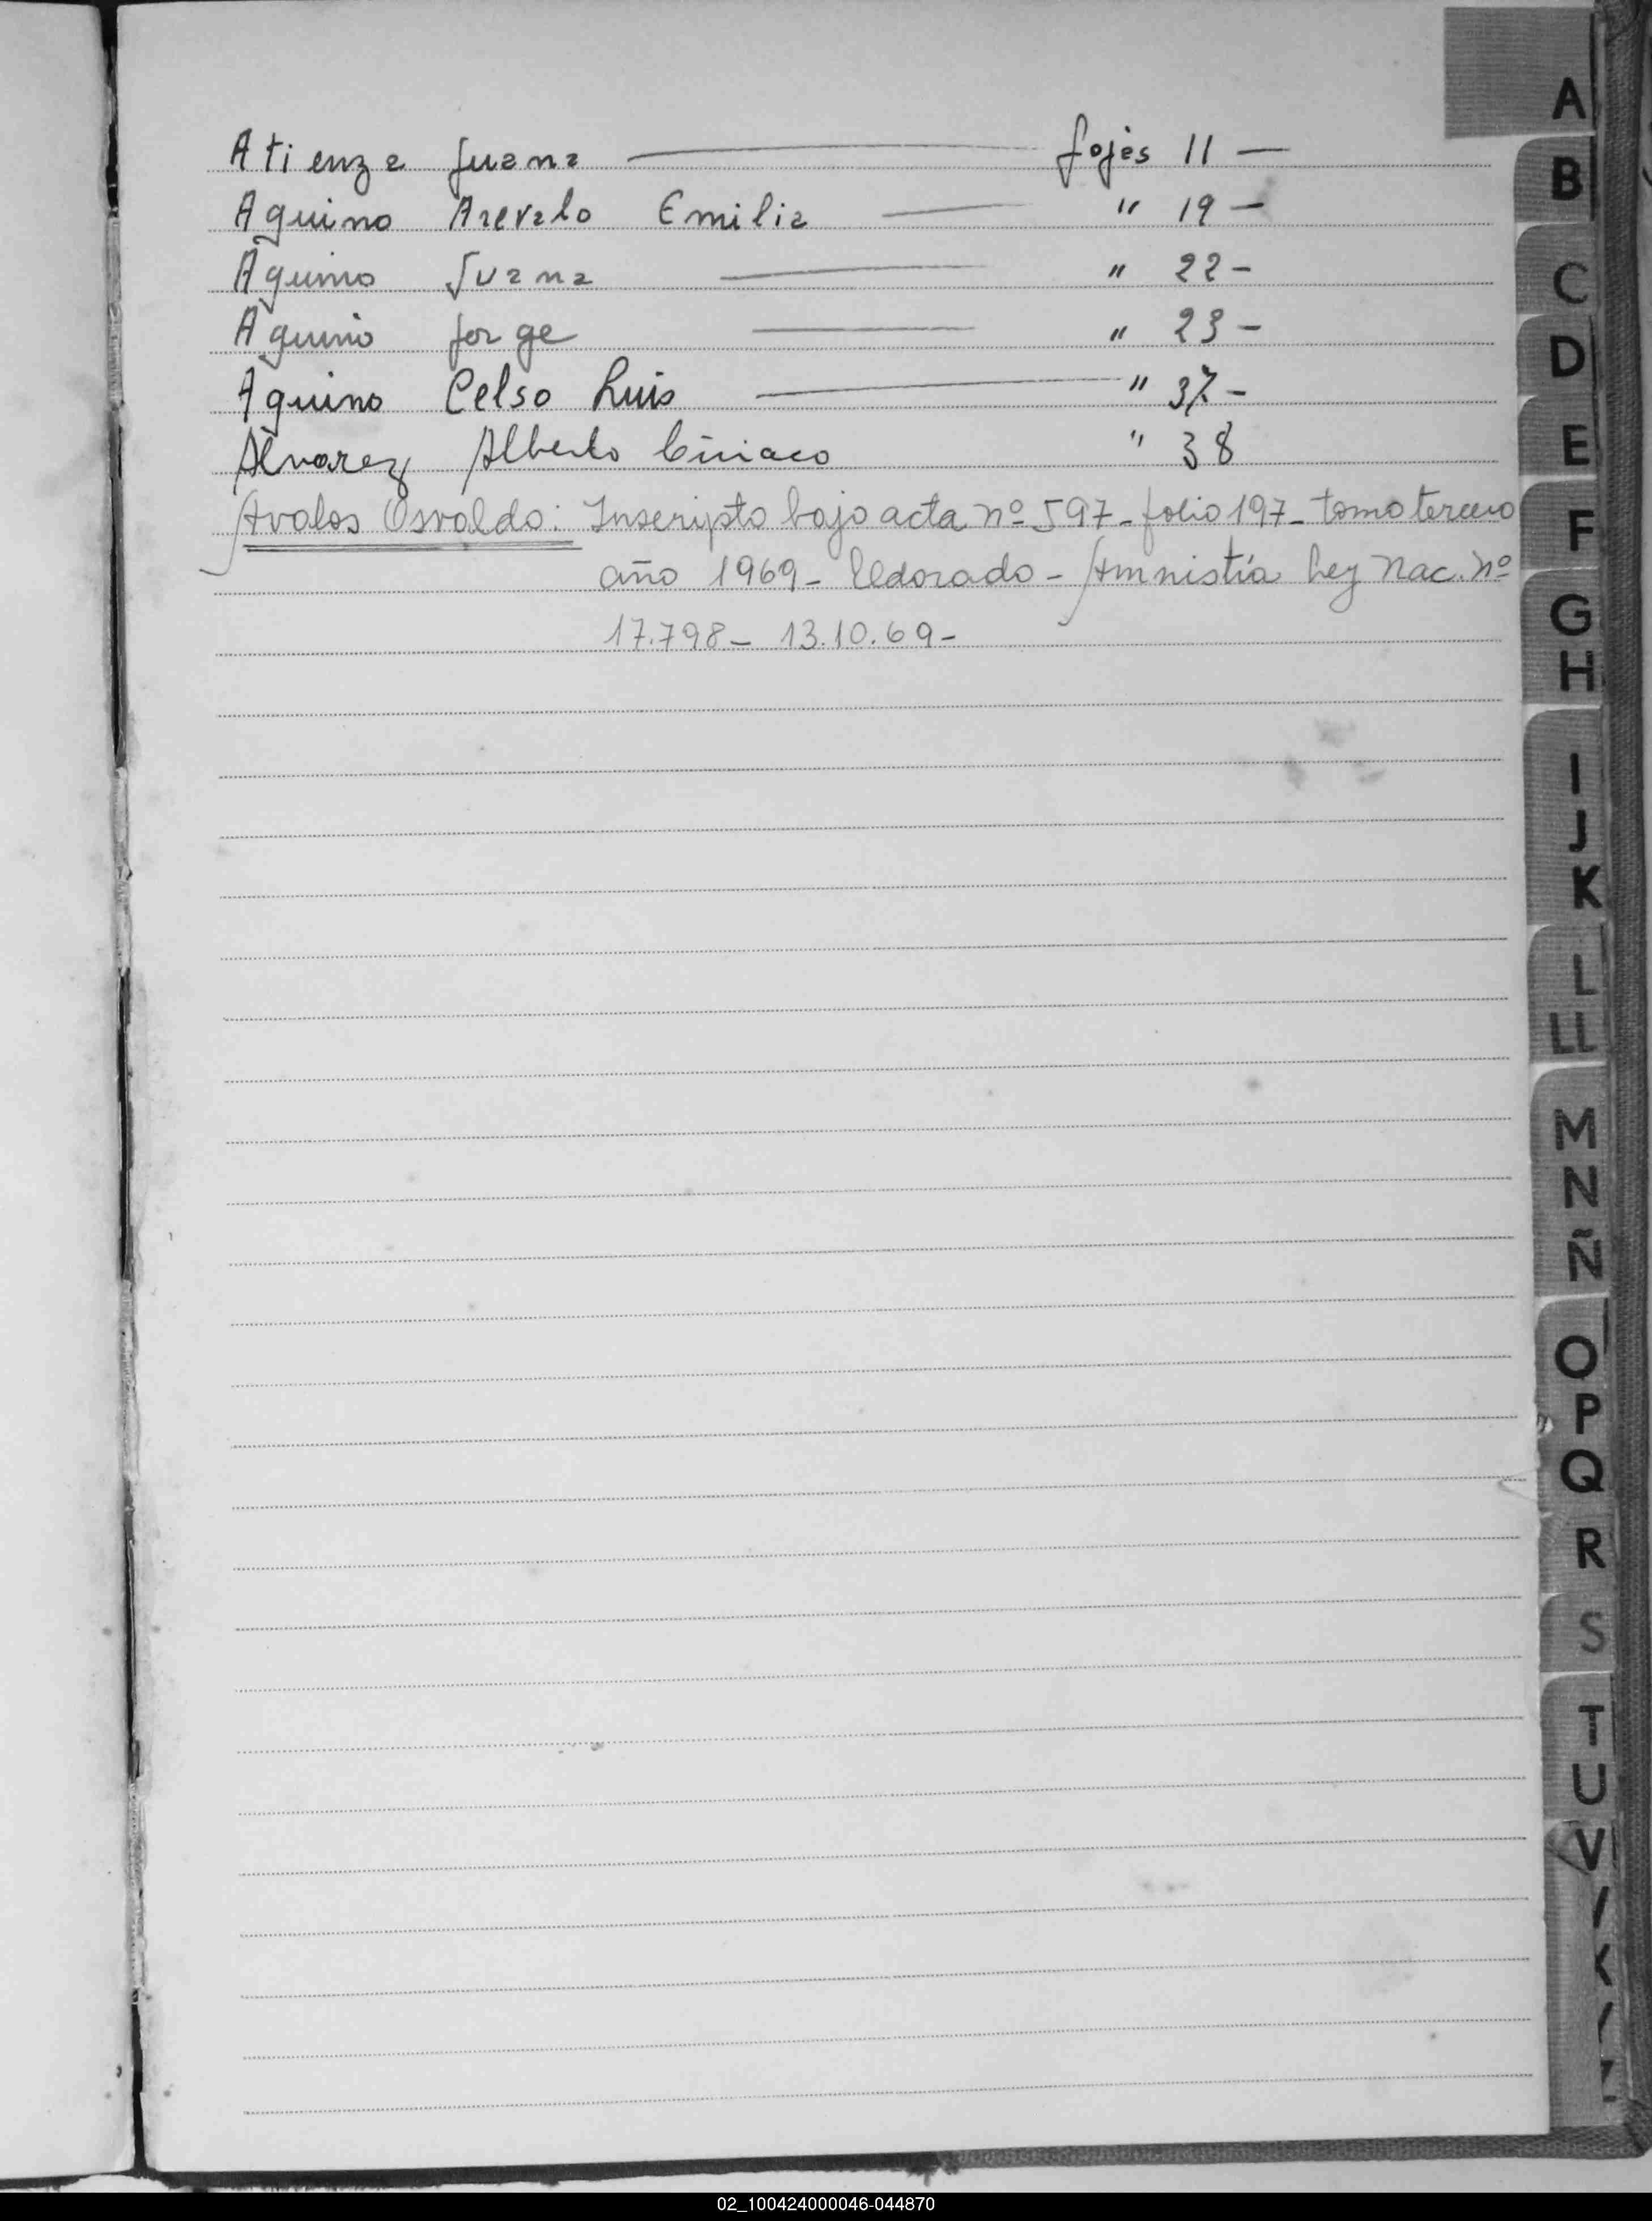 Atienza Juana — fojas 11 —
Aquino Arevalo Emilia — " 19 —
Aquino Juana — " 22 -
Aquino Jorge — " 23 -
Aquino Celso Luis — " 37 -
Alvarez Alberto Ciriaco " 38
Avalos Osvaldo: Inscripto bajo acta nº 597 - folio 197 - tomo tercero
año 1969 - Eldorado - Amnistía Ley Nac. nº
17.798 - 13.10.69 -
A
B
C
D
E
F
G
H
I
J
K
L
LL
M
N
Ñ
O
P
Q
R
S
T
U
V
02_100424000046-044870